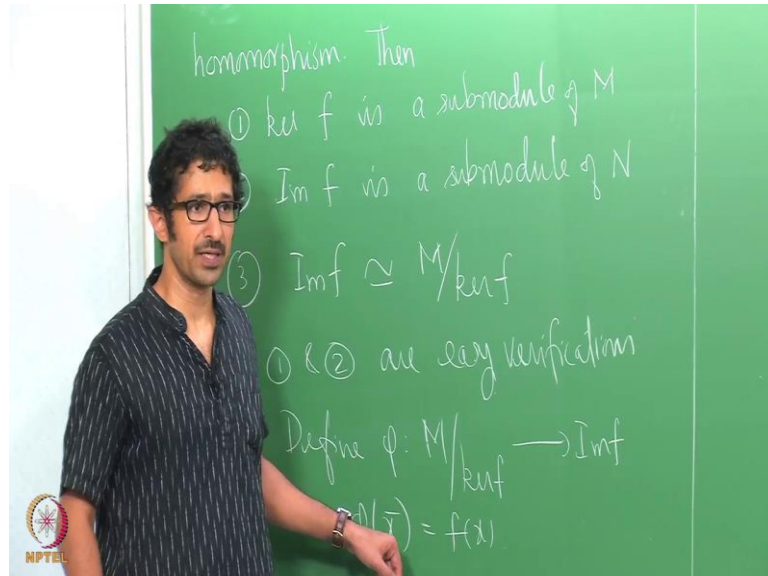 homomorphism. Then
① ker f is a submodule of M
Im f is a submodule of N
③ Im f ≃ M/ker f
① & ② are easy verifications
Define φ: M/ker f ⟶ Im f
(x̄) = f(x)
NPTEL